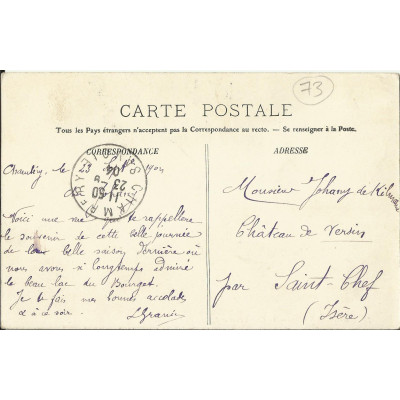 73
CARTE POSTALE
Tous les Pays étrangers n'acceptent pas la Correspondance au recto. — Se renseigner à la Poste.
CORRESPONDANCE
ADRESSE
le 23 1904
CHAMBERY
23
04
Voici une te rappellera
le souvenir de cette belle journée
de belle saison dernière où
nous avons si longtemps admiré
le beau lac du Bourget.
Je te fais mes bonnes accolades
à ce soir.
Monsieur Johany de
Château de Versin
par Saint-Chef
(Isère)